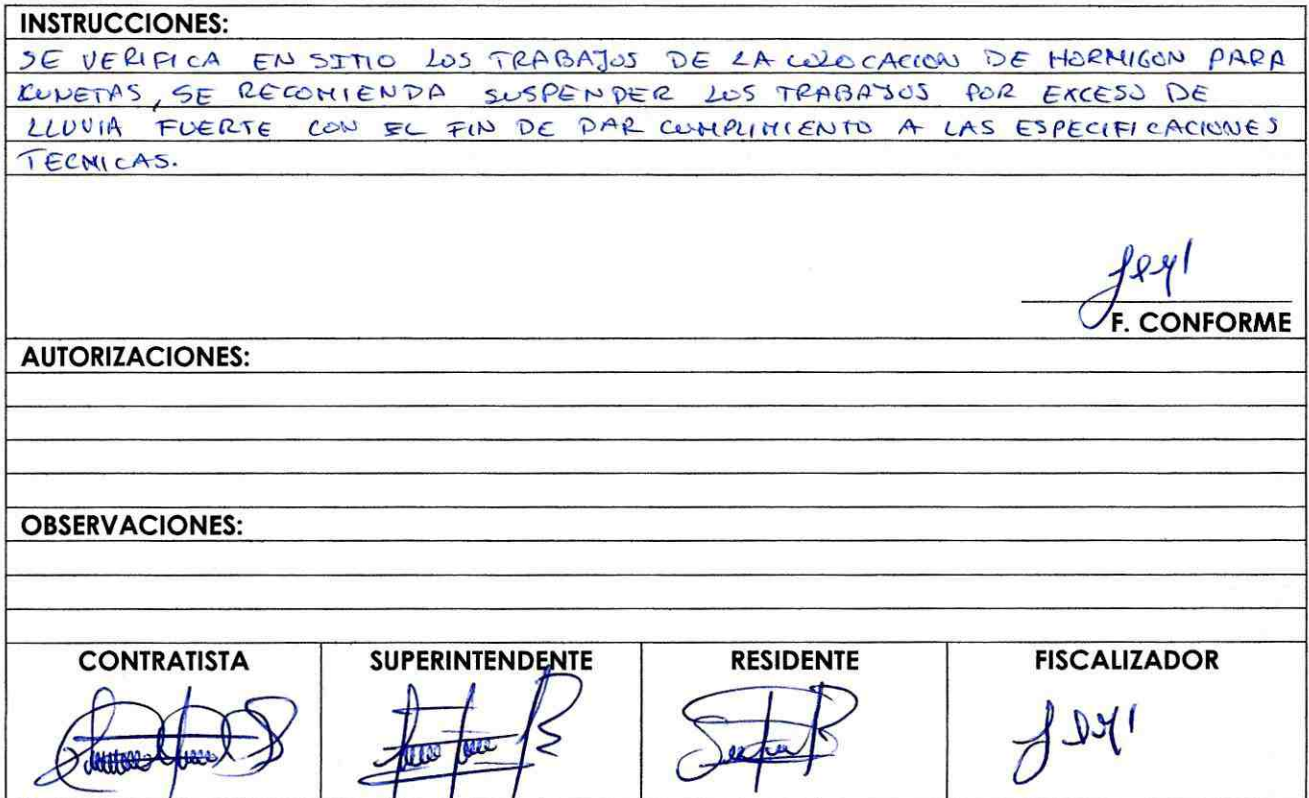 INSTRUCCIONES:
SE VERIFICA EN SITIO LOS TRABAJOS DE LA COLOCACION DE HORMIGON PARA
KUNETAS, SE RECOMIENDA SUSPENDER LOS TRABAJOS POR EXCESO DE
LLUVIA FUERTE CON EL FIN DE DAR CUMPLIMIENTO A LAS ESPECIFICACIONES
TECNICAS.
F. CONFORME
AUTORIZACIONES:
OBSERVACIONES:
CONTRATISTA SUPERINTENDENTE RESIDENTE FISCALIZADOR